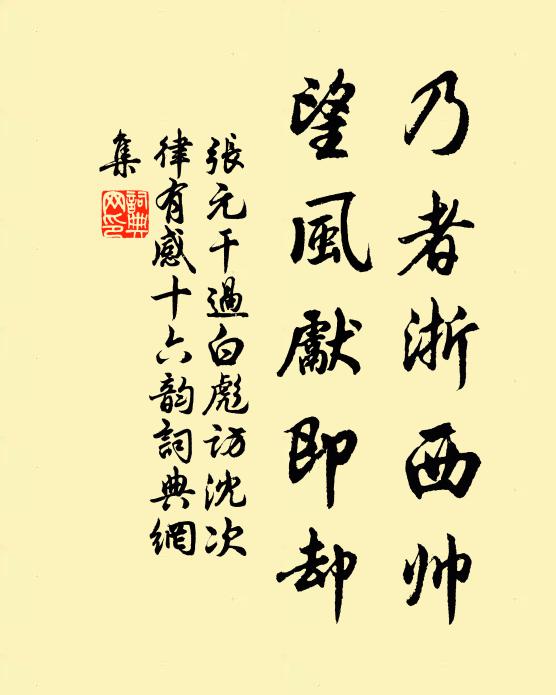 乃者浙西帅
望風獻即却
張元干過白彪访沈次
律有感十六韵詞典網
集
詞典
网印